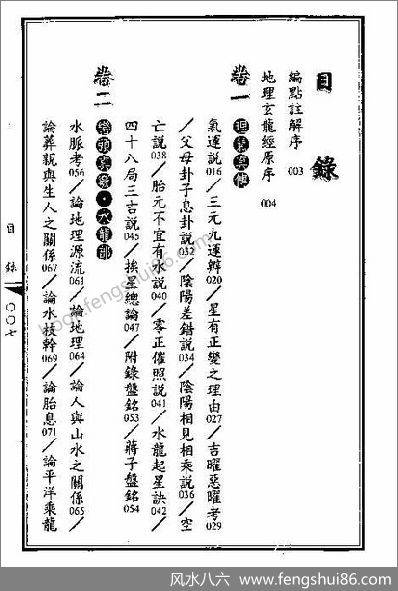 目錄
編點註解序 003
地理玄龍經原序 004
卷一
氣運說016／三元九運辨020／星有正變之理由027／吉曜惡曜考029
／父母卦子息卦說032／陰陽差錯說034／陰陽相見相乘說036／空
亡說038／胎元不宜有水說040／零正催照說041／水龍起星訣042／
四十八局三吉說045／挨星總論047／附錄盤銘053／蔣子盤銘054
卷二
巒頭真機・水龍部
水脈考056／論地理源流061／論地理064／論人與山水之關係065／
論葬親與生人之關係067／論水枝幹069／論胎息071／論平洋乘龍
目錄
〇〇七
book.fengshui86.com
风水八六 - www.fengshui86.com